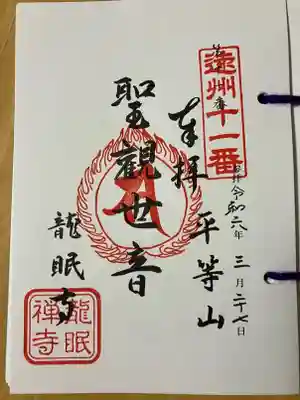 遠州十一番
令和六年三月二十七日
奉拝
平等山
聖観世音
龍眠寺
龍眠
禅寺